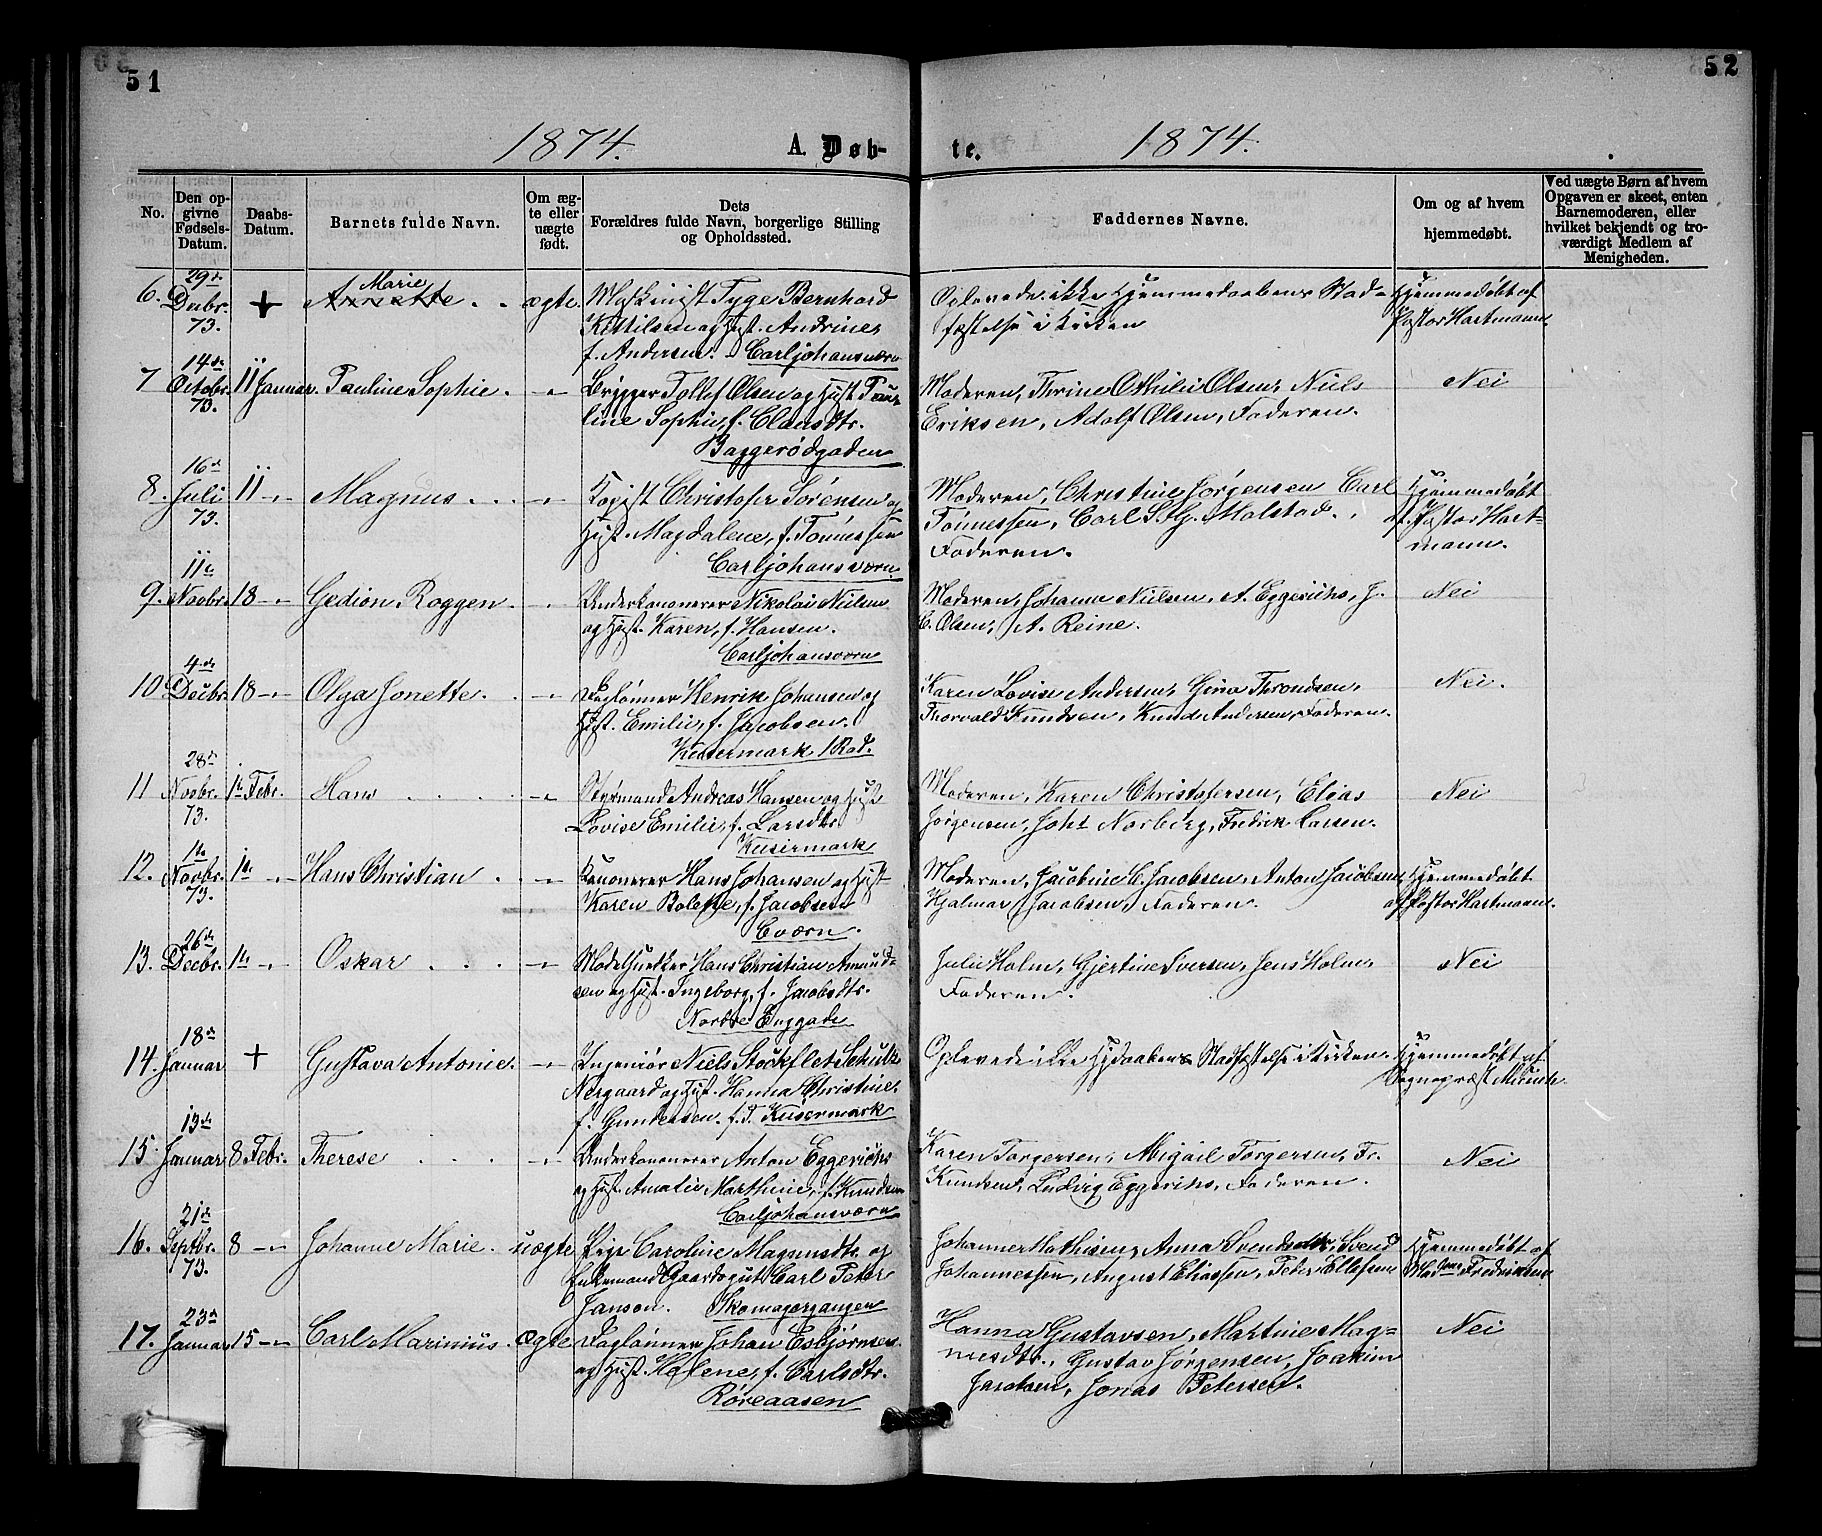 51
52
1874.
A. Døb-
te.
1874.
No.
Den op-
givne
Fødsels-
Datum.
Daabs-
Datum.
Barnets fulde Navn.
Om æg-
te eller
uægte
født.
Dets
Forældres fulde Navn, borgerlige Stilling
og Opholdssted.
Faddernes Navne.
Om og af hvem
hjemmedøbt.
Ved uægte Børn af hvem
Opgaven er skeet, enten
Barnemoderen, eller
hvilket bekjendt og tro-
værdigt Medlem af
Menigheden.
6. 29de Decbr. 73. + Marie Annette ægte. Maskinist Tyge Bernhard
Kittilsen og Hust. Andrine,
f. Andersen. Carljohansværn
Oplevede ikke Hjemmedaabens Stad-
fæstelse i Kirken
Hjemmedøbt af
Pastor Hartmann.
7 14de Octobr. 73. 11 Januar. Pauline Sophie. -"- Brygger Tollef Olsen og Hust Pau-
line Sophie, f. Olausdtr.
Baggerødgaden
Moderen, Thrine Othilie Olsen, Niels
Eriksen, Adolf Olsen, Faderen.
Nei
8. 16de Juli 73. 11 -"- Magnus -"- Kopist Christofer Sørensen og
Hust. Magdalene, f. Tønnessen
Carljohansværn.
Moderen, Christine Jørgensen Carl
Tønnessen, Carl S. G. Malstad.,
Faderen.
Hjemmedøbt
af Pastor Hart-
mann.
9. 11te Novbr. 18 -"- Gedion Roggen. -"- Underkanonerer Nikolai Nielsen
og Hust. Karen, f. Hansen.
Carljohansværn
Moderen, Johanne Nielsen, A. Eggerichs, J.
C. Olsen, A. Reine.
Nei
10 4de Decbr. 18 -"- Olga Jonette. -"- Daglønner Henrik Johansen og
Hust. Emilie, f. Jacobsen.
Kusermark
Karen Lovise Andersen, Gina Throndsen,
Thorvald Knudsen, Knud Andersen, Faderen.
Nei.
11 28de Novbr. 73. 1te Febr. Hans -"- Styrmand Andreas Hansen og Hust
Lovise Emilie, f. Larsdtr.
Kusermark
Moderen, Karen Christofersen, Elias
Jørgensen, Johs Norberg, Fredrik Larsen.
Nei
12. 1te Novbr. 73. 1te -"- Hans Christian -"- Kanonerer Hans Johansen og Hust
Karen Bolette, f. Jacobsen
Cværn.
Moderen, Jacobine C. Jacobsen, Anton Jacobsen,
Hjalmar Jacobsen, Faderen.
Hjemmedøbt
af Pastor Hartmann.
13. 26de Decbr. 1te -"- Oskar -"- Modelsnedker Hans Christian Amund-
sen og Hust. Ingeborg, f. Jacobsdtr.
Nordre Enggade
Julie Holm, Gjertine Iversen, Jens Holm,
Faderen.
Nei
14. 18de Januar + Gustava Antonie. -"- Ingeniør Niels Stockflet Schultz
Nergaard og Hust. Hanna Christine,
f. Gundersen. f. T. Kusermark
Oplevede ikke Hjdaabens Stadfæstelse i Kirken.
Hjemmedøbt af
Sognepræst Münch.
15. 13de Januar 8 Febr. Therese -"- Underkanonerer Anton Eggerichs
og Hust. Amalie Marthine, f. Knudsen
Carljohansværn
Karen Torgersen, Abigail Torgersen, Fr.
Knudsen, Ludvig Eggerichs, Faderen.
Nei
16. 21de Septbr. 73. 8 -"- Johanne Marie. uægte Pige Caroline Magnusdtr. og
Enkemand Gaardsgut Carl Peter
Janson. Skomagergangen
Johanne Mathisen, Anna Svendsdtr, Svend
Johannessen, August Eliassen, Peder Ellefsen
Hjemmedøbt af
Madame Fredriksen
17. 23de Januar 15 -"- Carl Marinius. ægte Daglønner Johan Esbjørnsen
og Hust. Helene, f. Carlsdtr.
Røreaasen
Hanna Gustavsen, Martine Mag-
nusdtr., Gustav Jørgensen, Joakim
Jacobsen, Jonas Petersen.
Nei